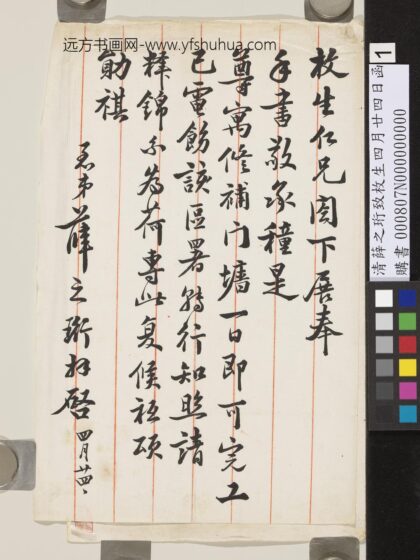 远方书画网-www.yfshuhua.com
枚生仁兄阁下展奉
手書敬承種是
尊寓修補門墻一日即可完工
已電飭該區署轉行知照請
釋錦念為荷專此复候祗頌
勛祺
弟薛之珩拜啓 四月廿四
清薛之珩致枚生四月廿四日函
購書 000807N000000000
1